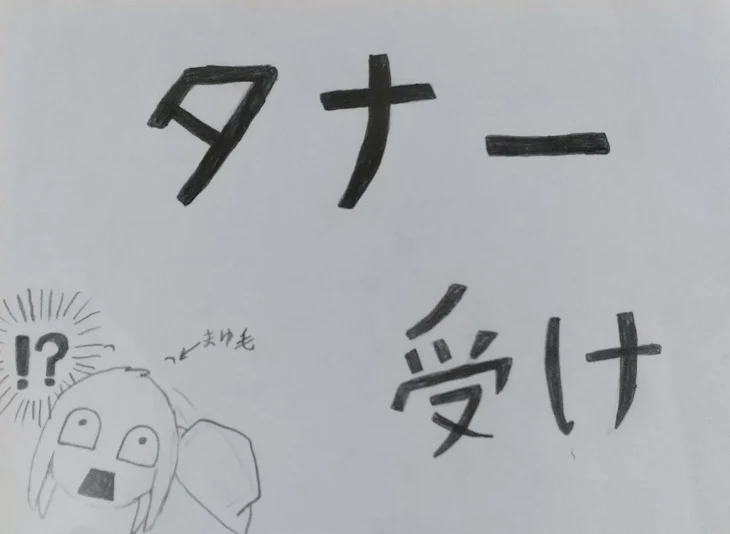 タナー
受け
!?
まゆ毛